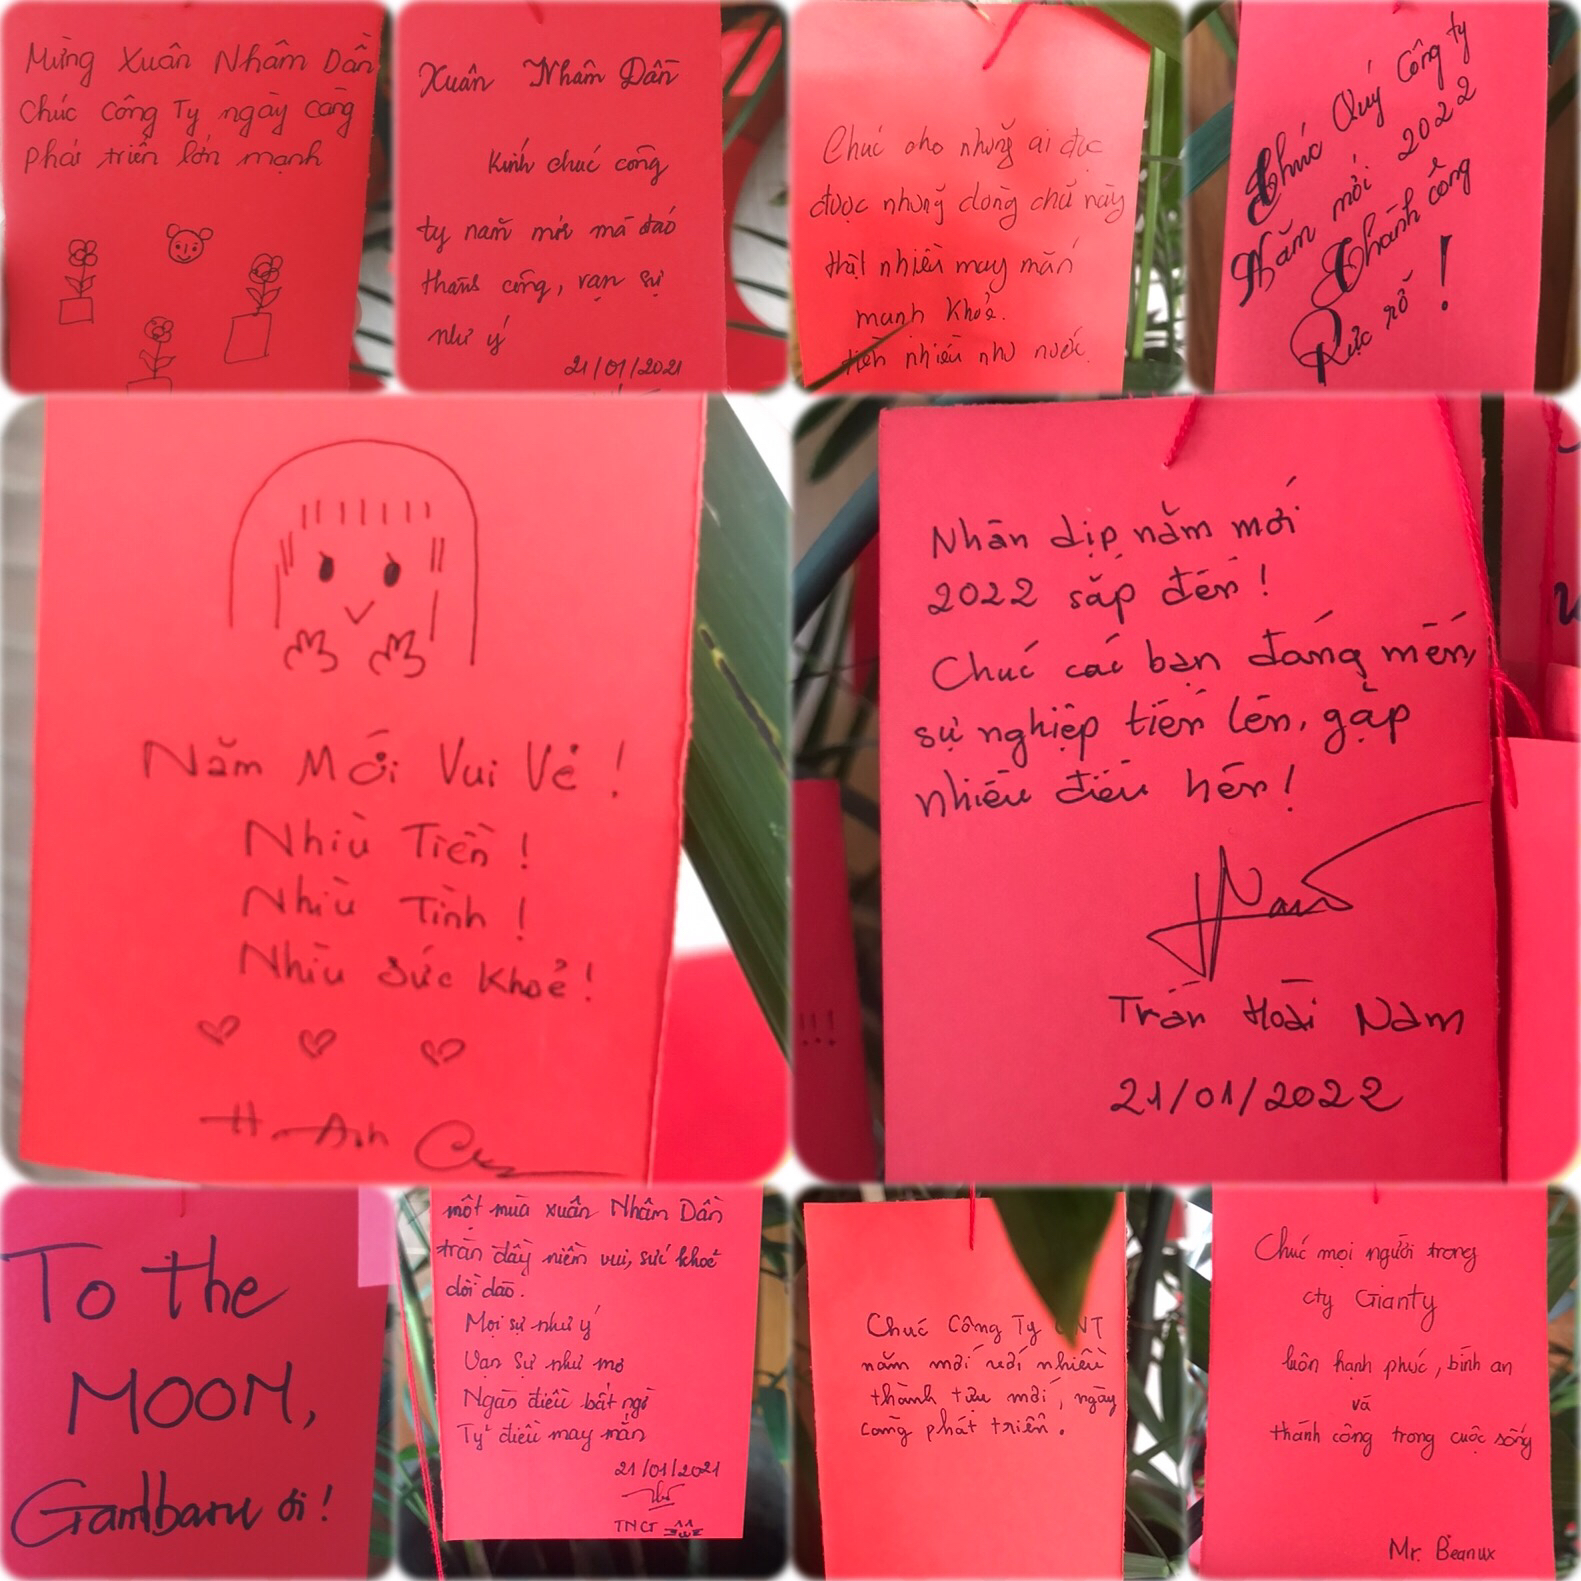 Mừng Xuân Nhâm Dần
Chúc Công Ty ngày càng
phát triển lớn mạnh
Xuân Nhâm Dần
Kính chúc công
ty năm mới mã đáo
thành công, vạn sự
như ý
21/01/2021
Chúc cho những ai đọc
được những dòng chữ này
thật nhiều may mắn
mạnh khỏe.
tiền nhiều như nước
Chúc Quý Công ty
Năm mới 2022
Thành công
Rực rỡ !
Năm Mới Vui Vẻ !
Nhiù Tiền !
Nhiù Tình !
Nhiù Sức Khoẻ !
Nhân dịp năm mới
2022 sắp đến !
Chúc các bạn đáng mến,
sự nghiệp tiến lên, gặp
nhiều điều hên !
Trần Hoài Nam
21/01/2022
!!!
To the
MOON,
Gambaru ơi !
một mùa xuân Nhâm Dần
tràn đầy niềm vui, sức khoẻ
dồi dào.
Mọi sự như ý
Vạn sự như mơ
Ngàn điều bất ngờ
Tỷ điều may mắn
21/01/2021
TNCT
Chúc Công Ty NT
năm mới với nhiều
thành tựu mới, ngày
càng phát triển.
Chúc mọi người trong
cty Gianty
luôn hạnh phúc, bình an
và
thành công trong cuộc sống
Mr. Beanux